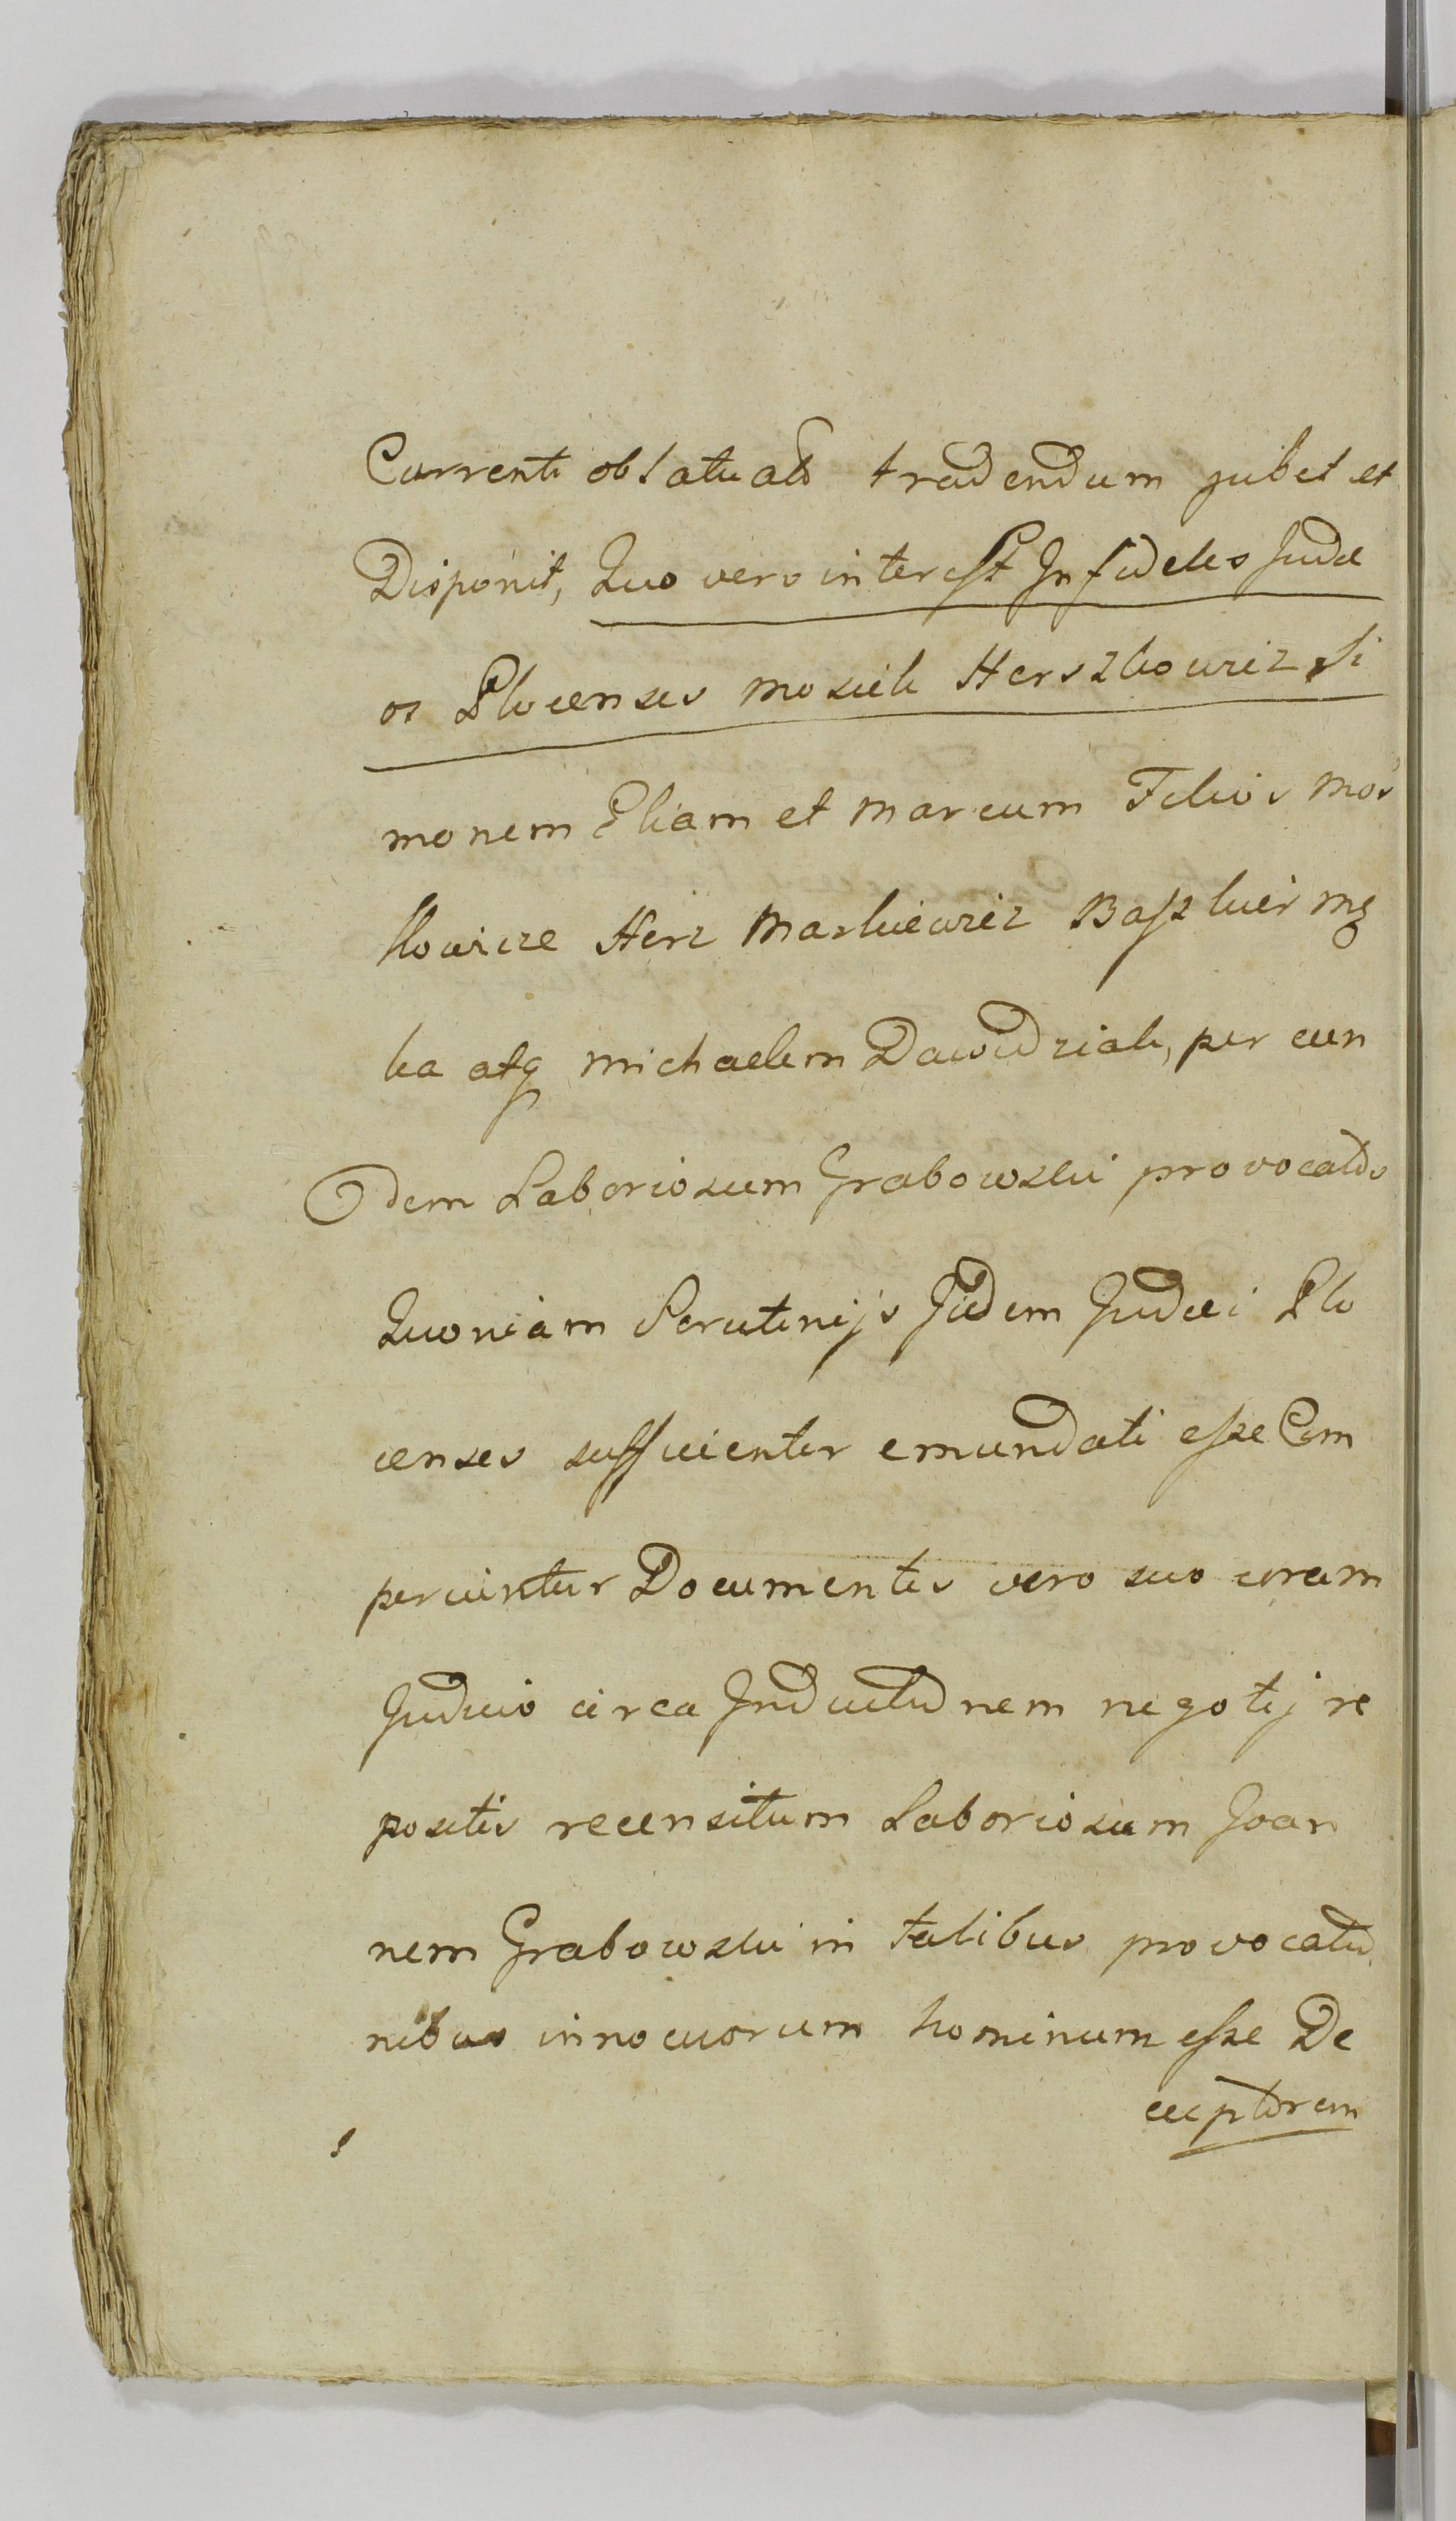 Currenti oblatuals tradendum jubet et
Disponit, Quo vero interest Infideles Judæ
os Plocenses Mosiek Herszkowicz Si
monem Eliam et Marcum Filios Mos
kowicze Herz Markiewicz Baszkier
ka atq Michaelem Dawidziak, per eun
dem Laboriosum Grabowski provocatos
Quoniam Scrutinijs Jidem Judæi Plo
censes sufficienter emundati esse Com
periuntur Documentis vero suo coram
Judicio circa Inductionem negotij re
positis recensitum Laboriosum Joan
nem Grabowski in talibus provocatio
nibus innocuorum hominum esse De
ceptorem